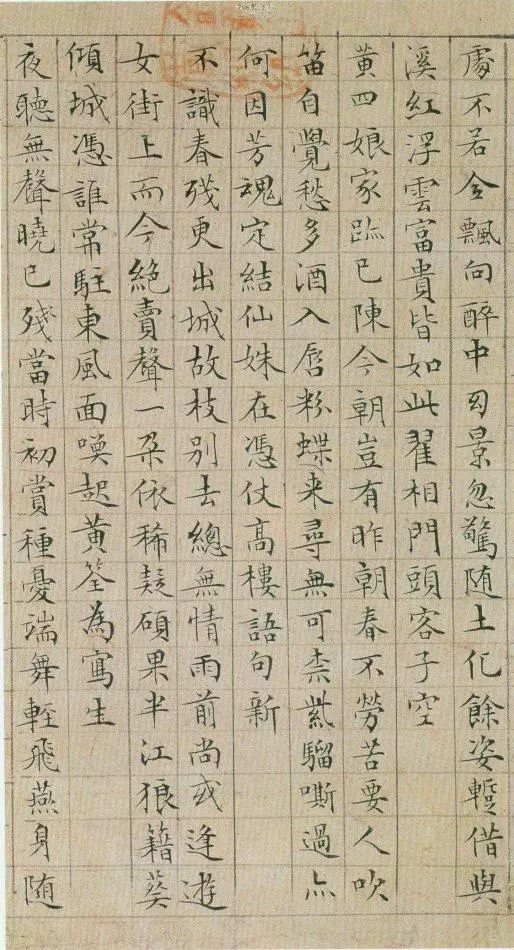 處不若全飄向醉中景忽驚随土化餘姿蹔借與
溪紅浮雲富貴皆如此翟相門頭客子空
黄四娘家跡已陳今朝豈有昨朝春不勞苦要人吹
笛自覺愁多酒入唇粉蝶来尋無可柰紫騮嘶過亦
何因芳魂定結仙姝在憑仗高樓語句新
不識春殘更出城故枝别去總無情雨前尚或逢遊
女街上而今絶賣聲一朶依稀疑碩果半江狼籍葬
傾城憑誰常駐東風面喚起黄筌為寫生
夜聽無聲曉已殘當時初賞種憂端舞輕飛燕身随